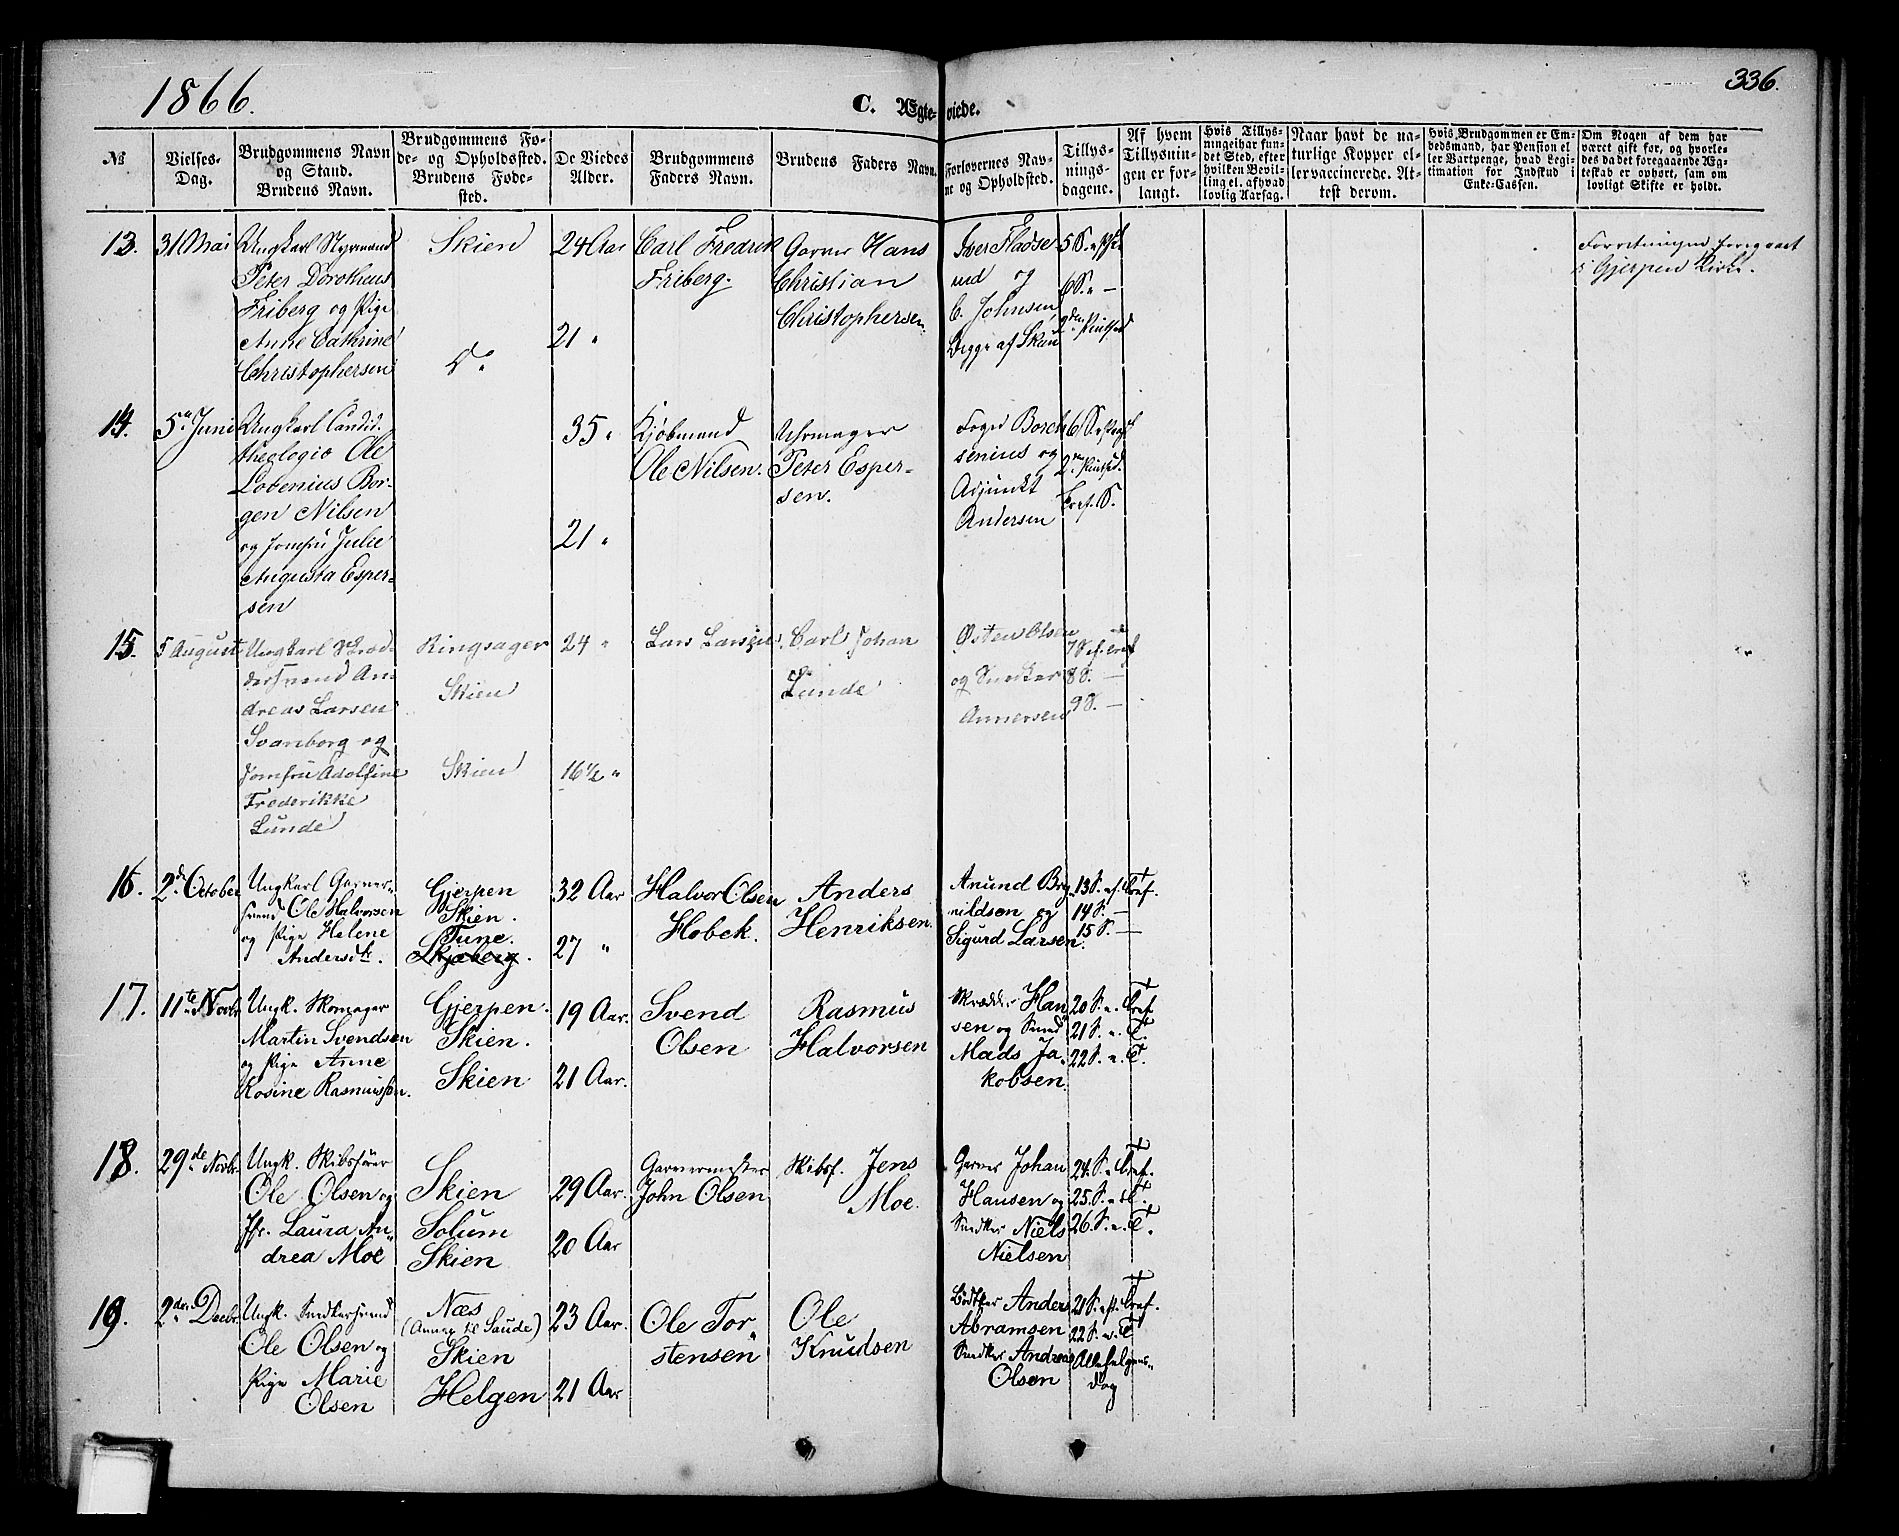 1866.
336.
C. Ægte-
viede.
No
Vielses-
Dag.
Brudgommens Navn
og Stand.
Brudens Navn.
Brudgommens Fø-
de- og Opholdssted.
Brudens Føde-
sted.
De Viedes
Alder.
Brudgommens
Faders Navn.
Brudens Faders Navn.
Forlovernes Nav-
ne og Opholdsted.
Tillys-
nings-
dagene.
Af hvem
Tillysnin-
gen er for-
langt.
Hvis Tillys-
ning ei har fun-
det Sted, efter
hvilken Bevil-
ling el. af hvad
lovlig Aarsag.
Naar havt de na-
turlige Kopper el-
ler vaccinerede. At-
test derom.
Hvis Brudgommen er Em-
bedsmand, har Pension el-
ler Vartpenge, hvad Legi-
timation for Indskud i
Enke-Cassen.
Om Nogen af dem har
været gift før, og hvorle-
des da det foregaaende Æg-
teskab er ophørt, sam om
lovligt Skifte er holdt.
13.
31 Mai
Ungkarl Styrmand
Peter Dorotheus
Friberg og Pige
Anne Cathrine
Christophersen
Skien
Do
24 Aar
21 "
Carl Fredrik
Friberg.
Garver Hans
Christian
Christophersen.
Iver Fladse
ud og
C. Johnsen
begge af Skien
5 S.
6 S. " —
2den
Forretningen foregaaet
i Gjerpen Kirke.
14.
5te Juni
Ungkarl Candid.
theologio Ole
Lobenius Bor-
gen Nilsen
og Jomfru Julie
Augusta Esper-
sen
35 "
21 "
Kjöbmand
Ole Nilsen.
Uhrmager
Peter Esper-
sen.
Foged Borch
senius og
Adjunkt
Andersen
6 S.
15.
5 August
Ungkarl
An-
dreas Larsen
Svanborg og
Jomfru Adolfine
Frederikke
Lunde
Ringsager
Skien
Skien
24 "
16 1/2 "
Lars Larsen
Carl Johan
Lunde
Østen Olsen
og Snecker
Annersen
7 S. ef. Tref
8 S. —
9 S. —
16.
2de October
Ungkarl Garver-
svend Ole Halvorsen
og Pige Helene
Andersdtr.
Gjerpen
Skien.
Tune.
Skjeberg.
32 Aar
27 "
Halvor Olsen
Hobek.
Anders
Henriksen.
Anund Bry-
nildsen og
Sigurd Larsen.
13 S. ef. Tref.
14 S. —
15 S. —
17.
11te Novbr
Ungk. Skomager
Martin Svendsen
og Pige Anne
Rosine Rasmussen.
Gjerpen.
Skien.
Skien
19 Aar.
21 Aar.
Svend
Olsen
Rasmus
Halvorsen
Skrædder Han
sen og Smed
Mads Ja-
kobsen.
20 S. e. Tref.
21 S. e. T.
22 S. e. T.
18.
29de Novbr.
Ungk. Skibsfører
Ole Olsen og
Jfr. Laura An-
drea Moe
Skien
Solum
Skien
29 Aar.
20 Aar
Garvermester
John Olsen
Skibsf. Jens
Moe.
Garver Johan
Hansen og
Snedker Niels
Nielsen
24. S. e. Tref.
25. S. e. T.
26. S. e. T.
19.
2den Decbr.
Ungk. Snedkersvend
Ole Olsen og
Pige Marie
Olsen
Næs
(Annex til Saude)
Skien
Helgen
23 Aar.
21 Aar
Ole Tor-
stensen
Ole
Knudsen
Bødtker Anders
Abramsen
Snedker Andreas
Olsen
21 S. eft. Tref.
22 S. e. T
Allehelgens-
dag